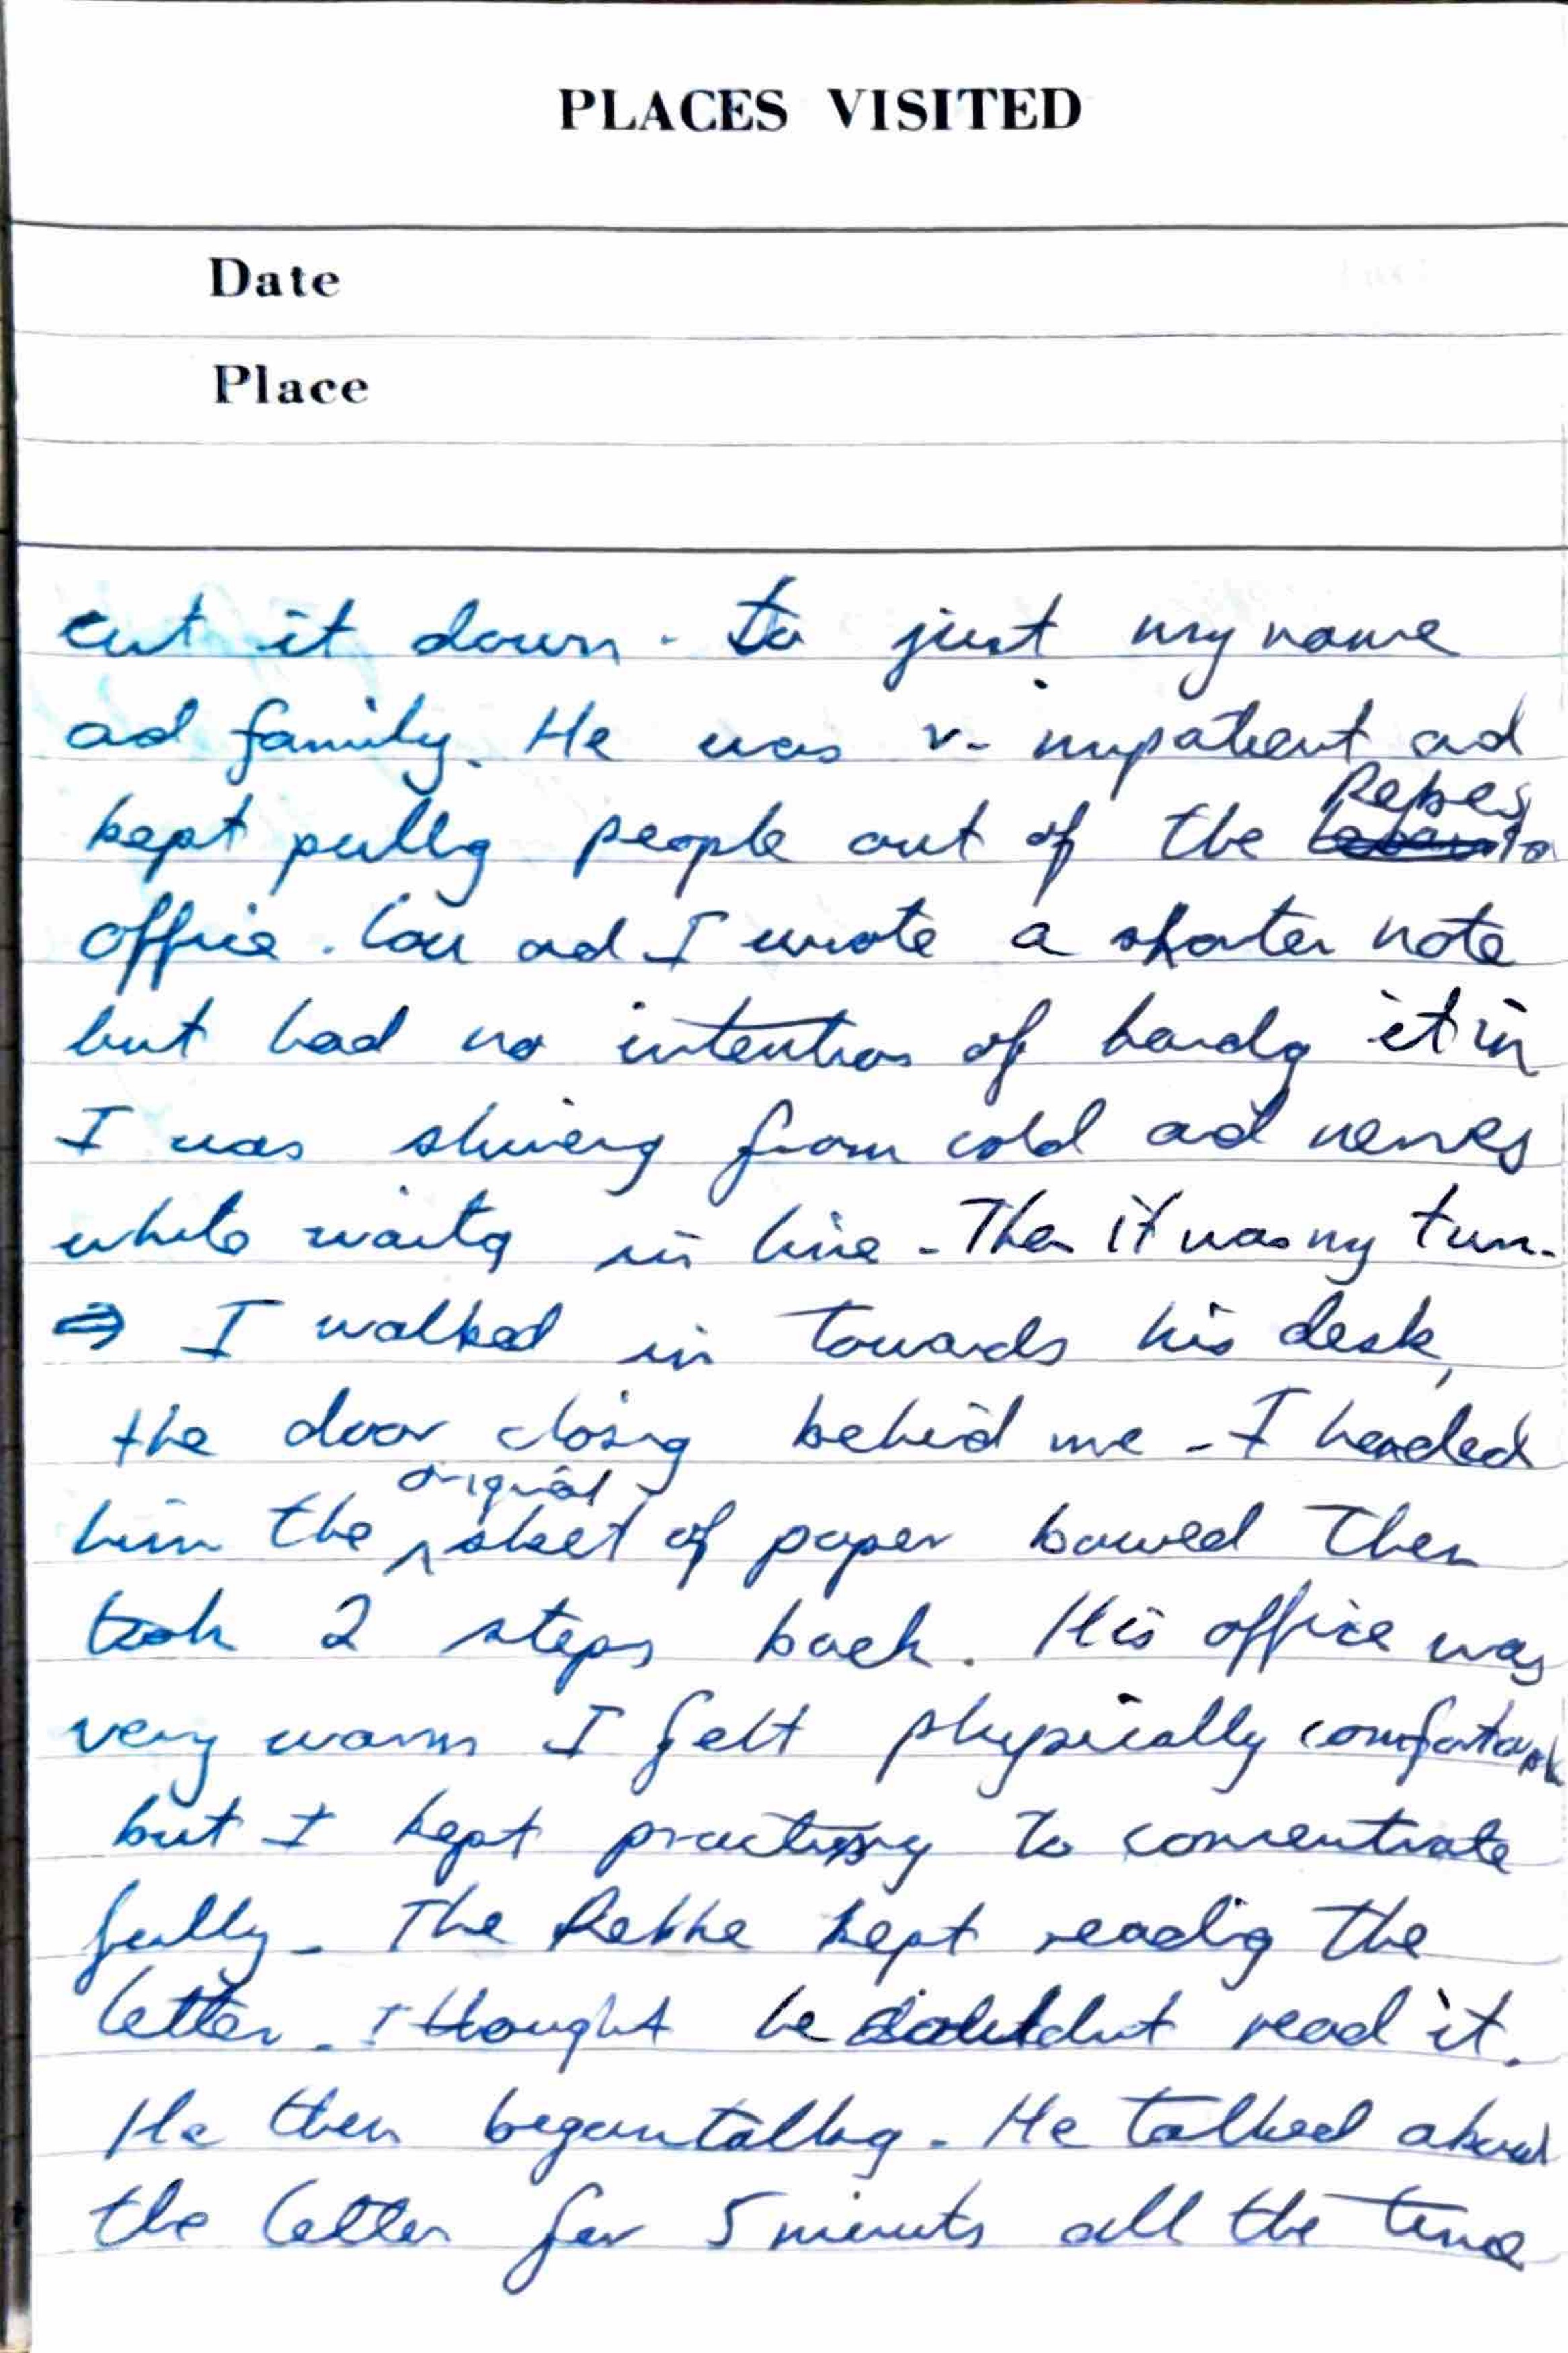 PLACES VISITED
Date
Place
cut it down. to just my name
ad family. He was v. impatient ad
Rebes
kept pullg people out of the
office. Lou ad I wrote a shorter note
but had no intention of handg it in
I was shiverg from cold ad nerves
while waitg in line - Then it was my turn.
⇒ I walked in towards his desk,
the door closig behid me - I handed
original
him the ^ sheet of paper bowed then
took 2 steps back. His office was
very warm I felt physically comfortabl
but I kept practisig to concentrate
fully - The Rebbe kept readig the
letter. I thought he couldnt read it.
He then began talkg. He talked about
the letter for 5 minuts all the time